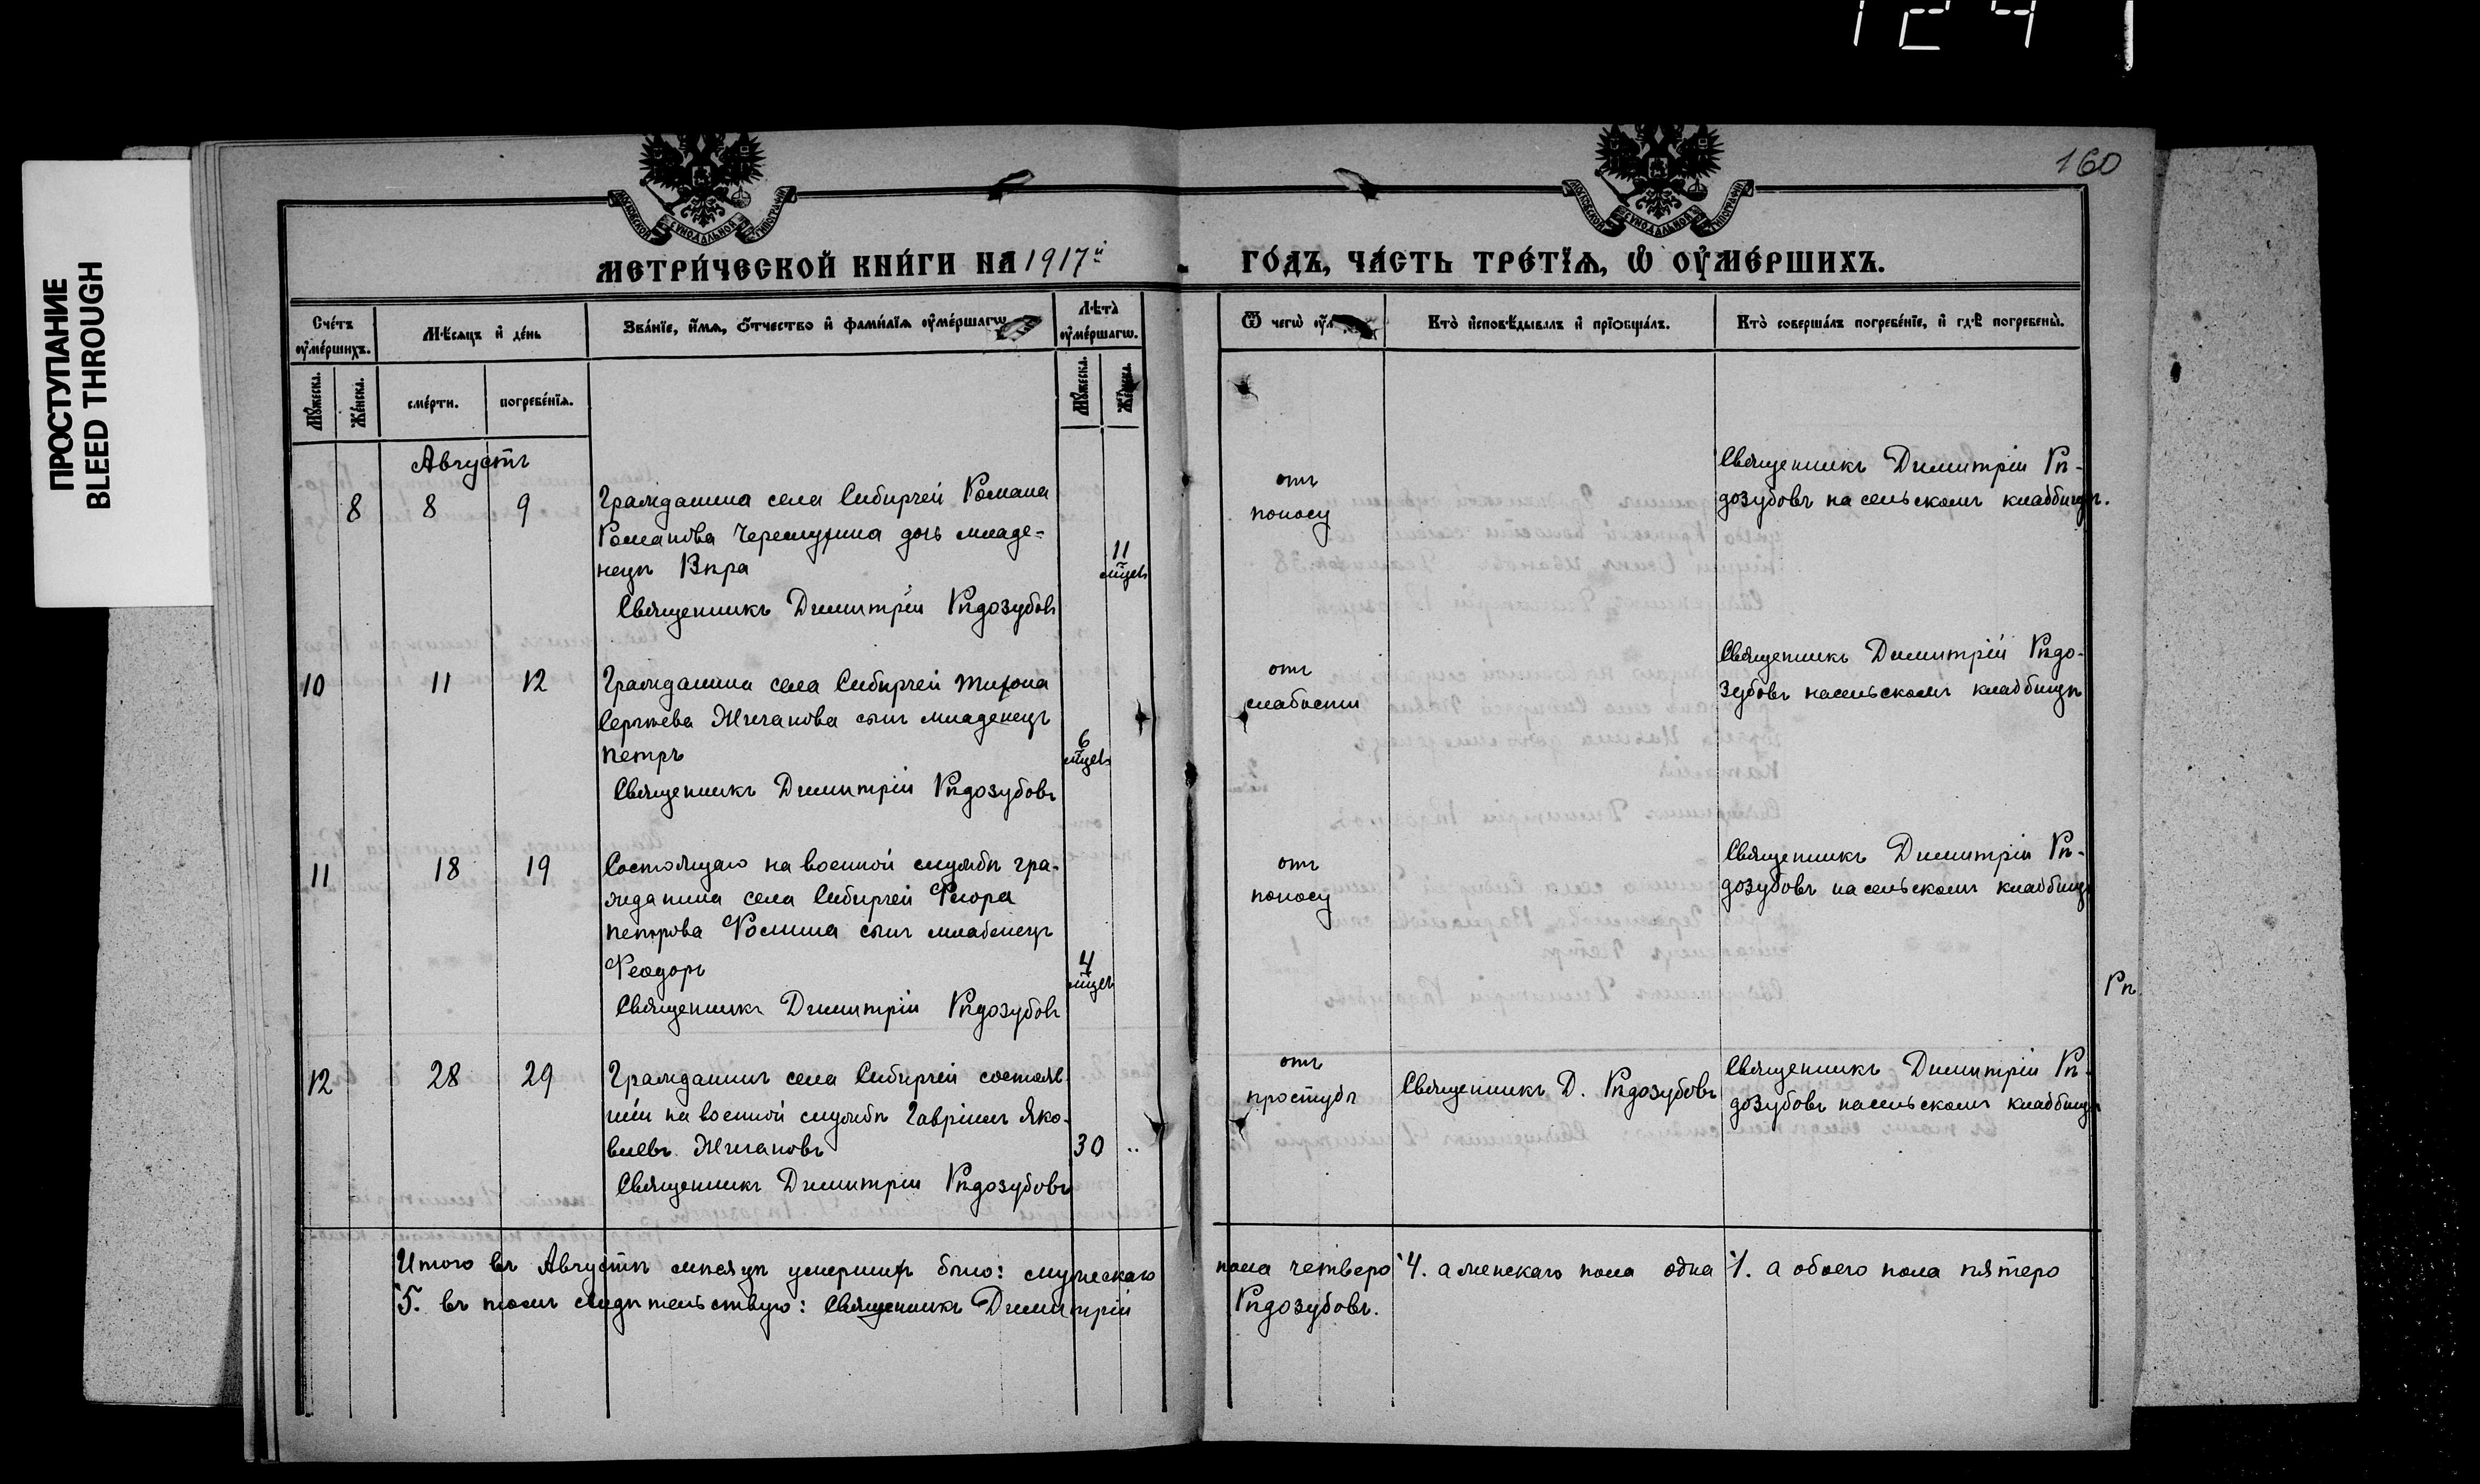 1241
ПРОСТУПАНИЕ
BLEED THROUGH
160
МОСКОВСКОЙ СѴНОДАЛЬНОЙ ТИПОГРАФІИ
МОСКОВСКОЙ СѴНОДАЛЬНОЙ ТИПОГРАФІИ
МЕТРИ́ЧЕСКОЙ КНИ́ГИ НА 1917й
ГО́ДЪ, ЧА́СТЬ ТРЕ́ТІѦ, Ѡ҆ ОУ҆МЕ́РШИХЪ.
Сче́тъ оу҆ме́ршихъ.
Мѣ́сѧцъ и҆ де́нь
Зва́нїе, и҆́мѧ, ѻ҆́тчество и҆ фами́лїѧ оу҆ме́ршагѡ
Лѣ́та оу҆ме́ршагѡ.
Ѿ чегѡ̀
Кто̀ и҆сповѣ́дывалъ и҆ прїѡбща́лъ.
Кто̀ соверша́лъ погребе́нїе, и҆ гдѣ̀ погребены̀.
Мꙋ́жеска.
Же́нска.
сме́рти.
погребе́нїѧ.
Мꙋ́жеска.
Же́нска.
Августъ
8 8 9
Гражданина села Сибирчей Романа
Романова Черемухина дочь младе-
нецъ Вѣра
Священникъ Димитрій Рѣдозубовъ
11
мцевъ
отъ
поносу
Священникъ Димитрій Рѣ-
дозубовъ на сельскомъ кладбищѣ.
10 11 12
Гражданина села Сибирчей Тихона
Сергѣева Жиганова сынъ младенецъ
Петръ
Священникъ Димитрій Рѣдозубовъ
6
мцевъ
отъ
слабости
Священникъ Димитрій Рѣдо-
зубовъ на сельскомъ кладбищѣ
11 18 19
Состоящаго на военной службѣ гра-
жданина села Сибирчей Флора
Петрова Фомина сынъ младенецъ
Феодоръ
Священникъ Димитрій Рѣдозубовъ
4
мцев
отъ
поносу
Священникъ Димитрій Рѣ-
дозубовъ на сельскомъ кладбищѣ
Рѣ
12 28 29
Гражданинъ села Сибирчей состояв
шій на военной службѣ Гавріилъ Яко-
влевъ Жигановъ
Священникъ Димитрій Рѣдозубовъ
30 ..
отъ
простуды
Священникъ Д. Рѣдозубовъ
Священникъ Димитрій Рѣ-
дозубовъ на сельскомъ кладбищѣ
Итого въ Августѣ мѣсяцѣ умершихъ было: мужескаго пола четверо 4. а женскаго пола одна 1. а обоего пола пятеро
5. въ томъ свидѣтельствую: Священникъ Димитрій Рѣдозубовъ.